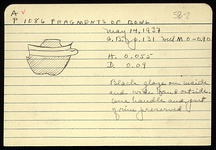 A
P 1086 FRAGMENTS OF BOWL
May 14, 1937
p. 131
H. 0.055
D. 0.09
Black glaze on inside
and outside
one handle and part
of rim preserved